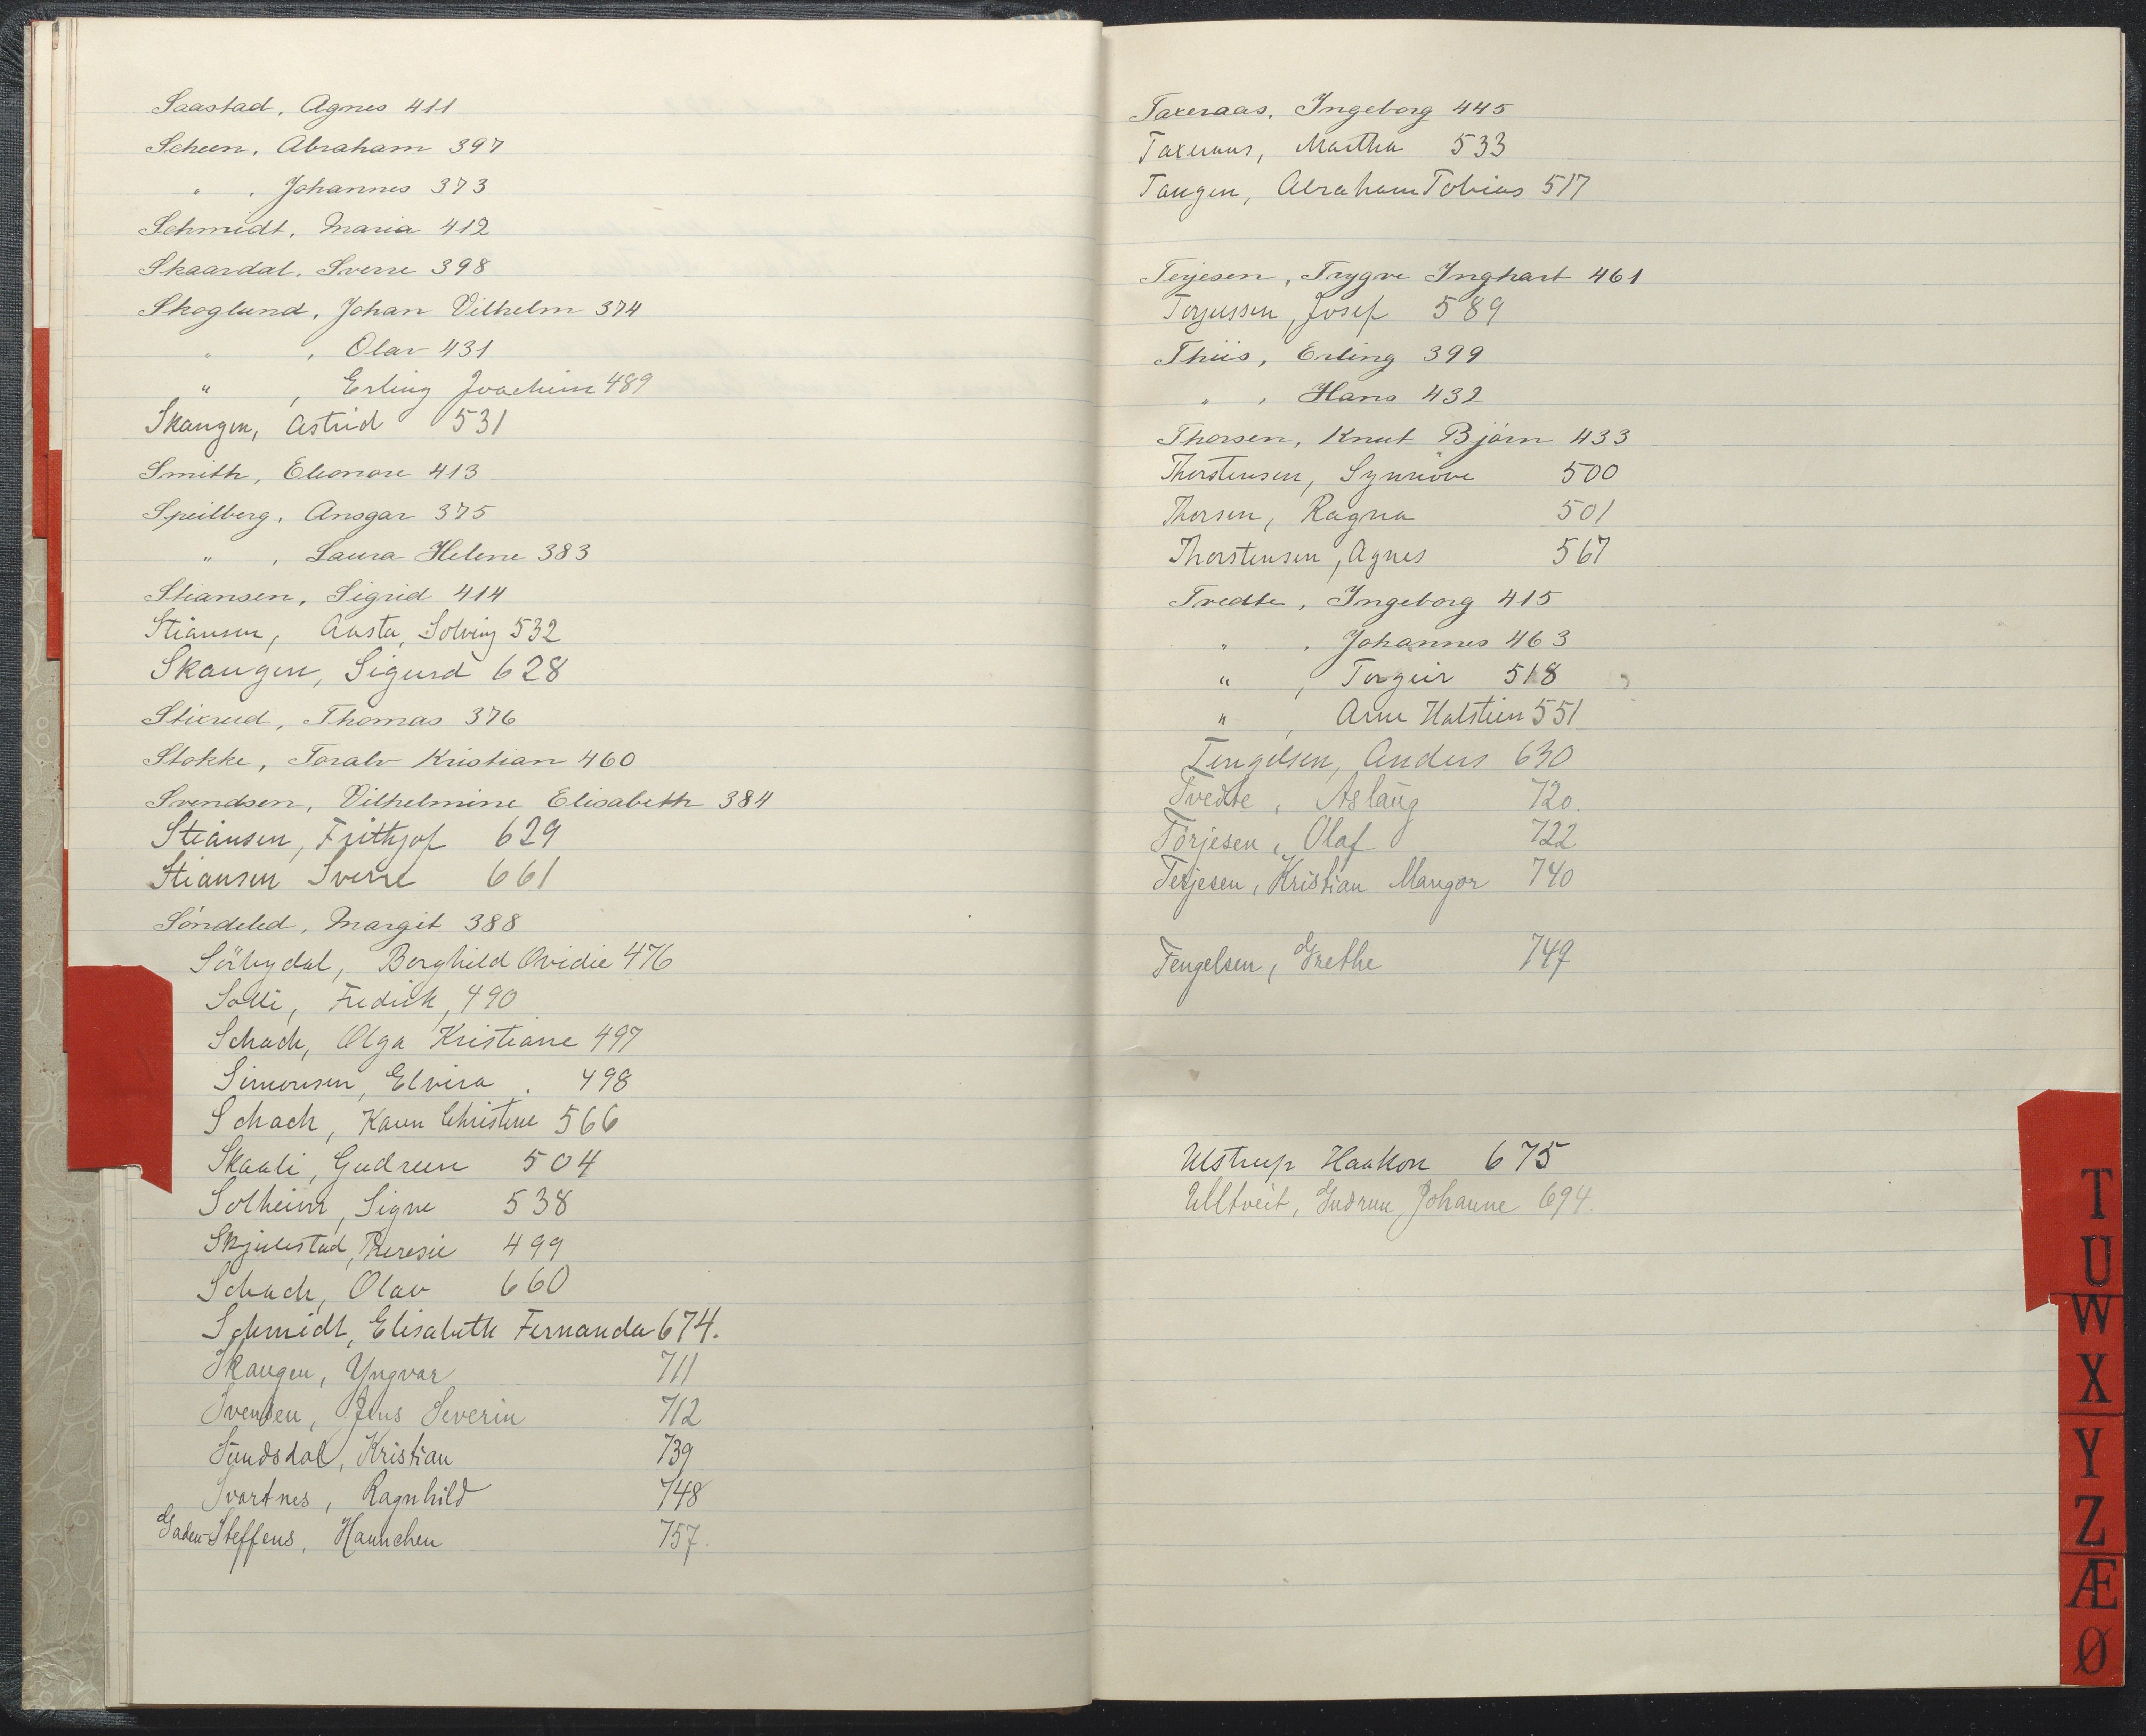 Saastad, Agnes 411
Scheen, Abraham 397
" , Johannes 373
Schmidt, Maria 412
Skaardal, Sverre 398
Skoglund, Johan Vilhelm 374
" , Olav 431
" , Erling Joachim 489
Skaugen, Astrid 531
Smith, Eleonore 413
Speilberg, Ansgar 375
" , Laura Helene 383
Stiansen, Sigrid 414
Stiansen, Aasta, Solveig 532
Skaugen, Sigurd 628
Stixrud, Thomas 376
Stokke, Toralv Kristian 460
Svendsen, Vilhelmine Elisabeth 384
Stiansen, Frithjof 629
Stiansen Sverre 661
Søndeled, Margit 388
Sörbydal, Borghild Ovidie 476
Solli, Fredrik, 490
Schach, Olga Kristiane 497
Simonsen, Elvira . 498
Schach, Karen Christine 566
Skaali, Gudrun 504
Solheim, Signe 538
Skjulestad, Theresie 499
Schach, Olav 660
Schmidt, Elisabeth Fernanda 674.
Skaugen, Yngvar 711
Svendsen, Jens Severin 712
Sundsdal, Kristian 739
Svartnes, Ragnhild 748
Gaden-Steffens, Hannchen 757.
Taxeraas, Ingeborg 445
Taxeraas, Martha 533
Tangen, Abraham Tobias 517
Terjesen, Trygve Inghart 461
Torjussen, Josef 589
Thiis, Erling 399
" , Hans 432
Thorsen, Knut Bjørn 433
Thorstensen, Synnöve 500
Thorsen, Ragna 501
Thorstensen, Agnes 567
Tvedte, Ingeborg 415
" , Johannes 463
" , Torgeir 518
" , Arne Halstein 551
Tengelsen, Anders 630
Tvedte, Aslaug 720.
Törjesen, Olaf 722
Terjesen, Kristian Mangor 740
Tengelsen, Grethe 749
Ulstrup Haakon 675
Ulltveit, Gudrun Johanne 694.
T
U
W
X
Y
Z
Æ
Ø